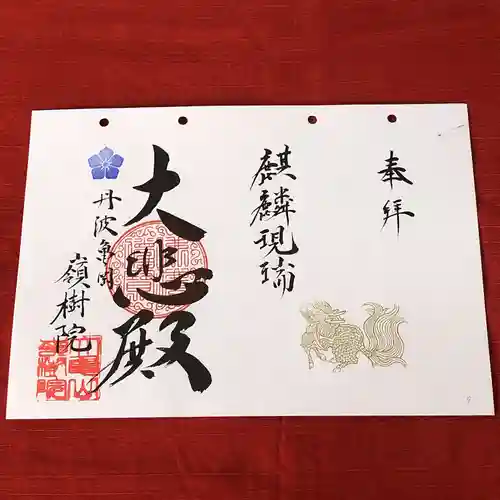 奉拝
麒麟現瑞
大悲殿
丹波亀岡
嶺樹院